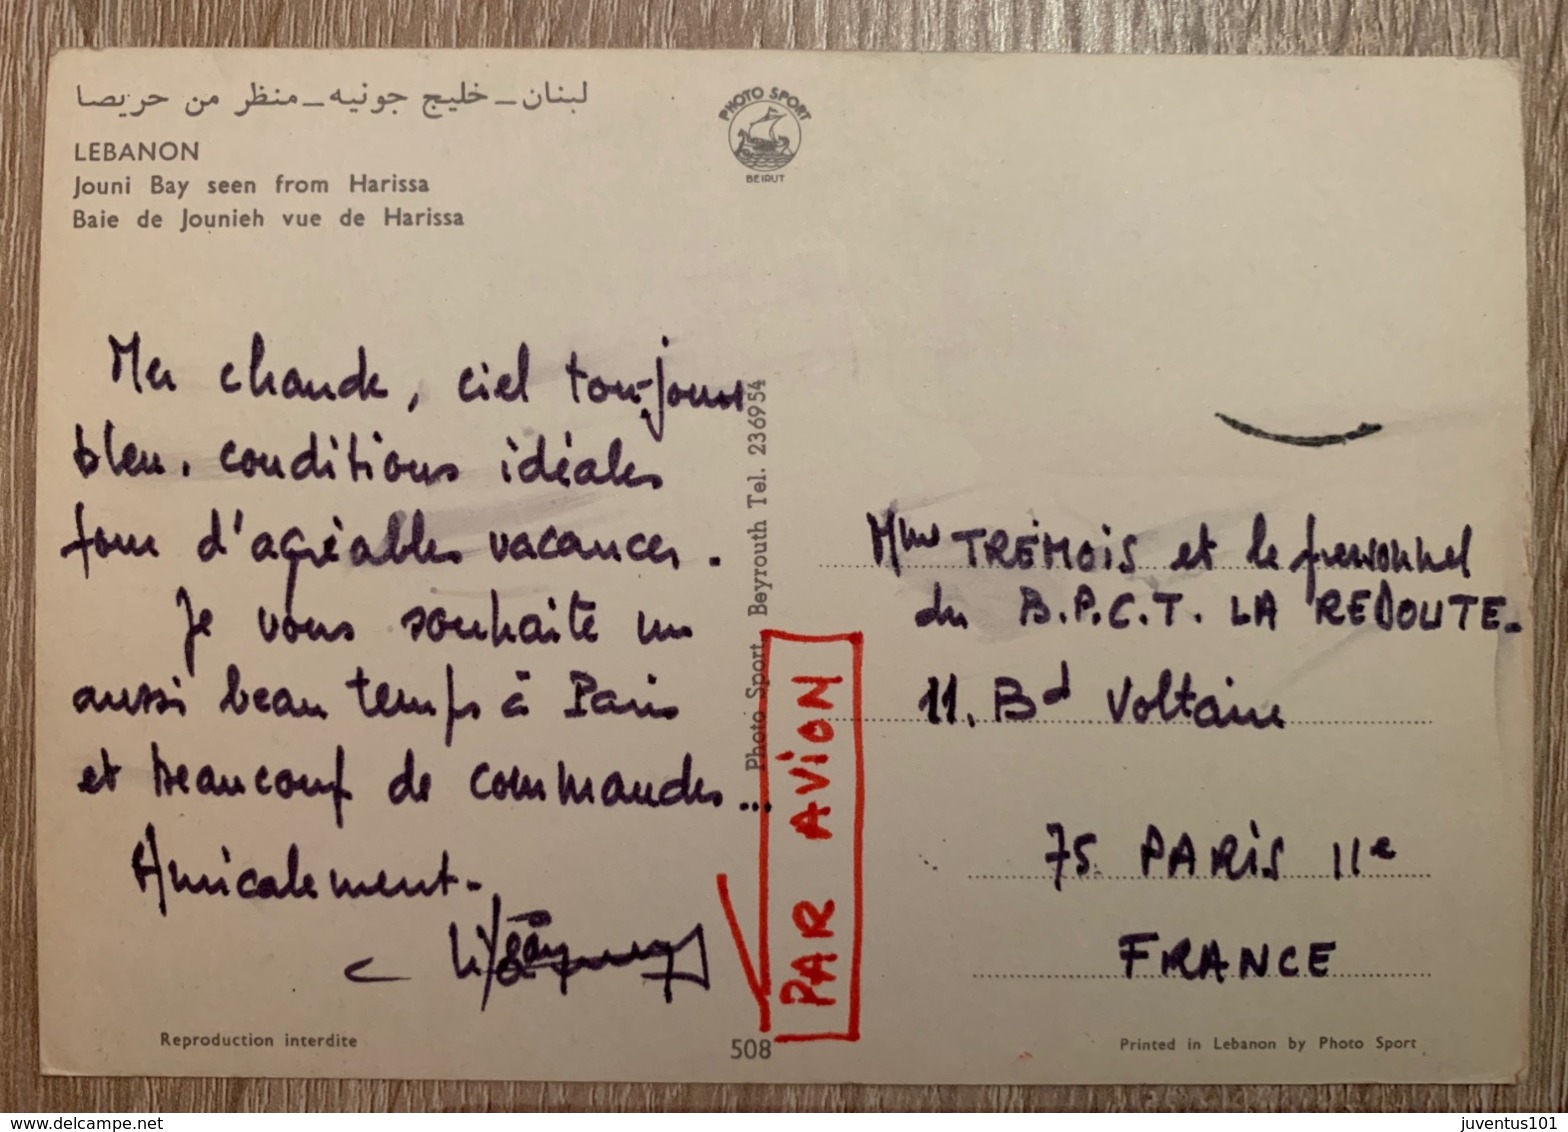 لبنان - خليج جونيه - منظر من حريصا
LEBANON
Jouni Bay seen from Harissa
Baie de Jounieh vue de Harissa
PHOTO SPORT
BEIRUT
Mer chaude, ciel toujours
bleu. conditions idéales
pour d'agréables vacances.
Je vous souhaite un
aussi beau temps à Paris
et beaucoup de commandes...
Amicalement.
Photo Sport, Beyrouth Tel. 236954
PAR AVION
Mme TRÉMOIS et le personnel
du B.P.C.T. LA REDOUTE.
11. Bd Voltaire
75. PARIS 11e
FRANCE
Reproduction interdite
508
Printed in Lebanon by Photo Sport
delcampe.net
juventus101